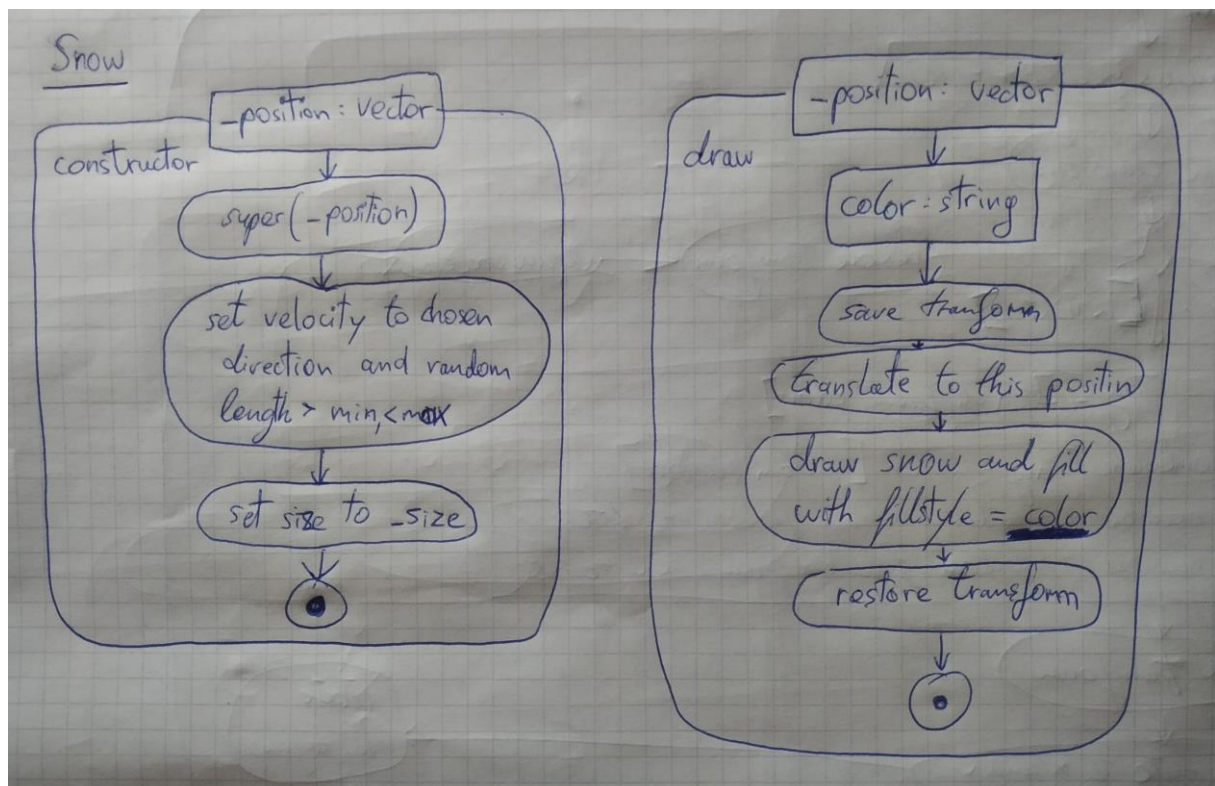 Snow
_position: vector
constructor
super(_position)
set velocity to chosen
direction and random
length > min, < max
set size to _size
_position: vector
draw
color: string
save transform
translate to this positin
draw snow and fill
with fillstyle = color
restore transform